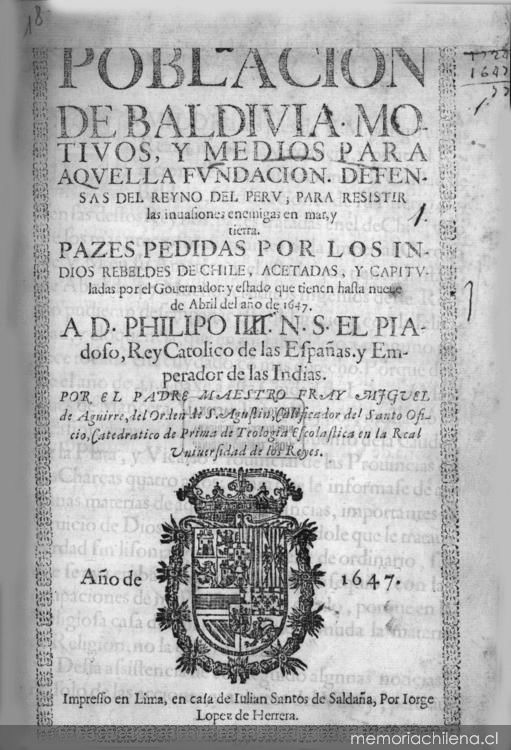 18
1647
POBLACION
DE BALDIVIA. MO-
TIVOS, Y MEDIOS PARA
AQVELLA FVNDACION. DEFEN-
SAS DEL REYNO DEL PERV, PARA RESISTIR
las inuasiones enemigas en mar, y
tierra.
PAZES PEDIDAS POR LOS IN-
DIOS REBELDES DE CHILE, ACETADAS, Y CAPITV-
ladas por el Gouernador: y estado que tienen hasta nueue
de Abril del año de 1647.
A D. PHILIPO IIII. N. S. EL PIA-
doso, Rey Catolico de las Españas. y Em-
perador de las Indias.
POR EL PADRE MAESTRO FRAY MIGVEL
de Aguirre, del Orden de S. Agustin, Calificador del Santo Ofi-
cio, Catedratico de Prima de Teologia Escolastica en la Real
Vniuersidad de los Reyes.
Año de 1647.
Impresso en Lima, en casa de Iulian Santos de Saldaña, Por Iorge
Lopez de Herrera.
memoriachilena.cl